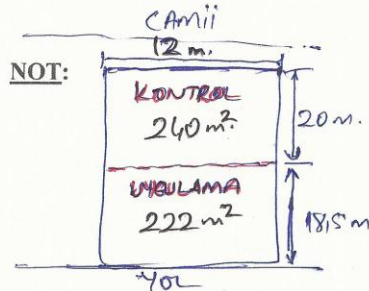 CAMii
12 m.
NOT:
KONTROL
240 m².
20 m.
UYGULAMA
222 m²
18,5 m
YOL